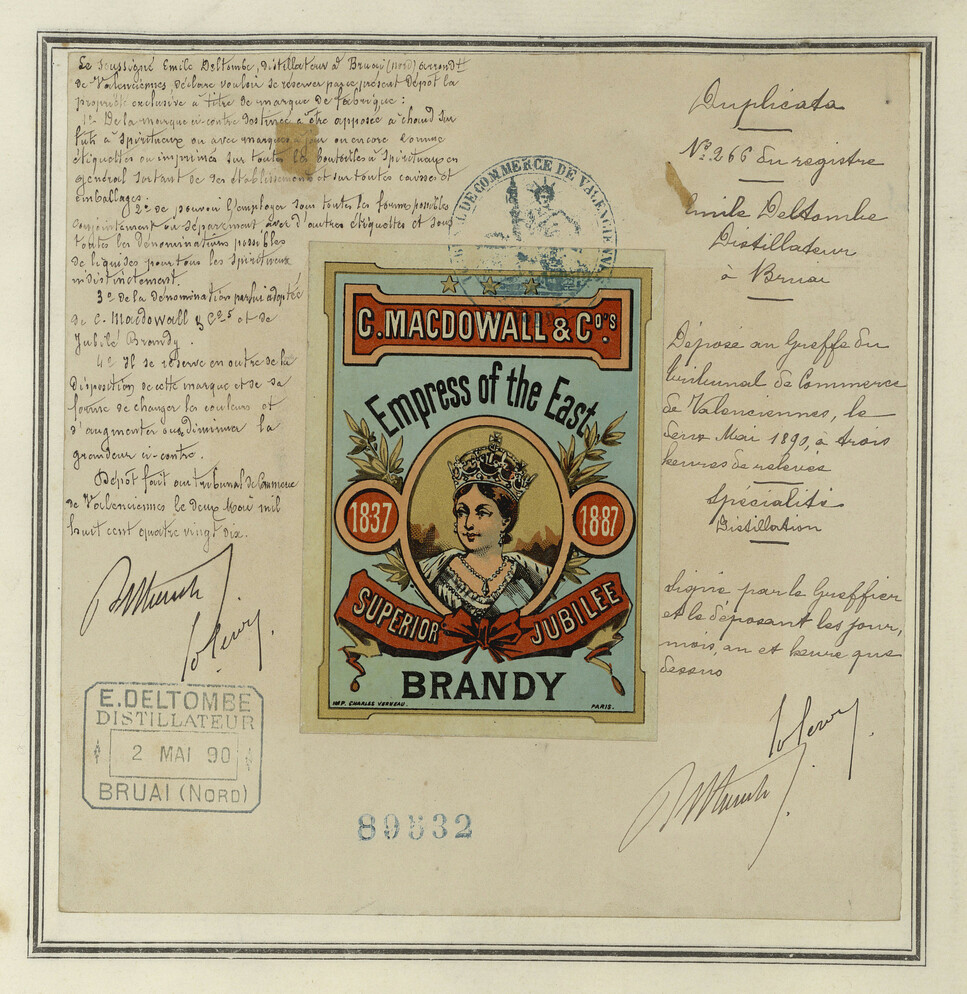 Le soussigné Emile Deltombe, distillateur à Bruai (Nord) arrondt
de Valenciennes, déclare vouloir se réserver par ce présent dépôt la
propriété exclusive à titre de marque de fabrique :
1º De la marque ci-contre destinée à être apposée à chaud sur
fûts à spiritueux ou avec marques à jour ou encore comme
étiquettes ou imprimés sur toutes les bouteilles à spiritueux en
général sortant de ses établissements et sur toutes caisses et
emballages.
2º de pouvoir l'employer sous toutes les formes possibles
conjointement ou séparément, avec d'autres étiquettes et sous
toutes les dénominations possibles
de liquides pour tous les spiritueux
indistinctement.
3º de la dénomination par lui adoptée
de C. Macdowall & Cºs et de
Jubilé Brandy.
4º Il se réserve en outre de la
disposition de cette marque et de sa
forme de changer les couleurs et
d'augmenter ou diminuer la
grandeur ci-contre.
Dépôt fait au tribunal de Commerce
de Valenciennes le deux Mai mil
huit cent quatre vingt dix.
E. DELTOMBE
DISTILLATEUR
2 MAI 90
BRUAI (NORD)
DE COMMERCE DE VALENCIENNES
C. MACDOWALL & Co's
Empress of the East
1837
1887
SUPERIOR
JUBILEE
BRANDY
IMP. CHARLES VERNEAU.
PARIS.
89532
Duplicata
Nº 266 du registre
Emile Deltombe
Distillateur
à Bruai
Déposé au Greffe du
tribunal de Commerce
de Valenciennes, le
deux Mai 1890, à trois
heures de relevée
Spécialité
Distillation
signé par le Greffier
et le déposant les jour,
mois, an et heure que
dessus